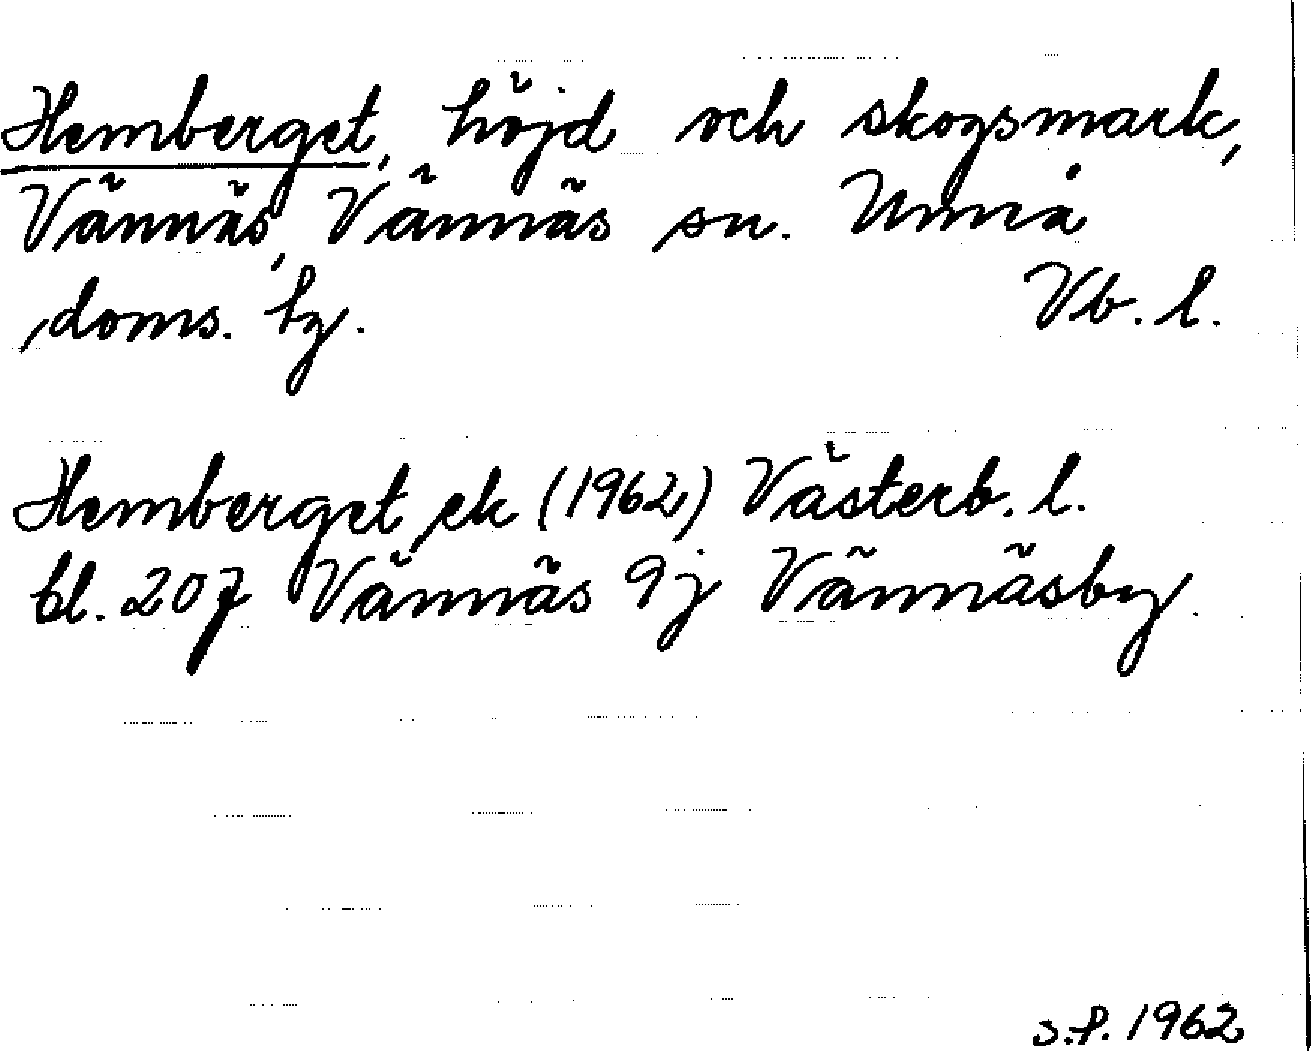 Hemberget, höjd och skogsmark,
Vännäs, Vännäs sn. Umeå
doms. hg. Vb. l.
Hemberget ek (1962) Västerb. l.
bl. 207 Vännäs 9j Vännäsby.
s.f. 1962